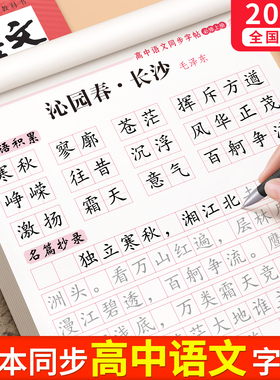 教科书
文
20
全国
高中语文同步字帖
沁园春·长沙
毛泽东
语积累
寥廓 苍茫 挥斥方遒
寒秋 往昔 沉浮 风华正茂
峥嵘 霜天 意气 百舸争流
激扬
名篇抄录
独立寒秋，湘江北
洲头。看万山红遍，层林
漫江碧透，百舸争流。
万类霜天
本同步高中语文字